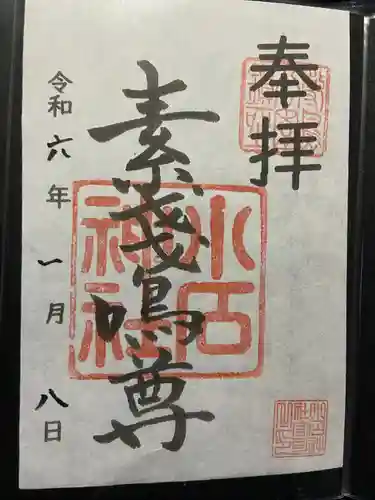 奉拝
素戔嗚尊
小石神社
令和六年一月八日